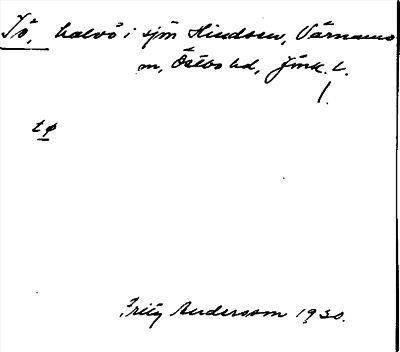 Tö, halvö i sjön Hindsen, Värnamo
sn, Östbo hd, Jönk. l.
tø
Fritz Andersson 1930.